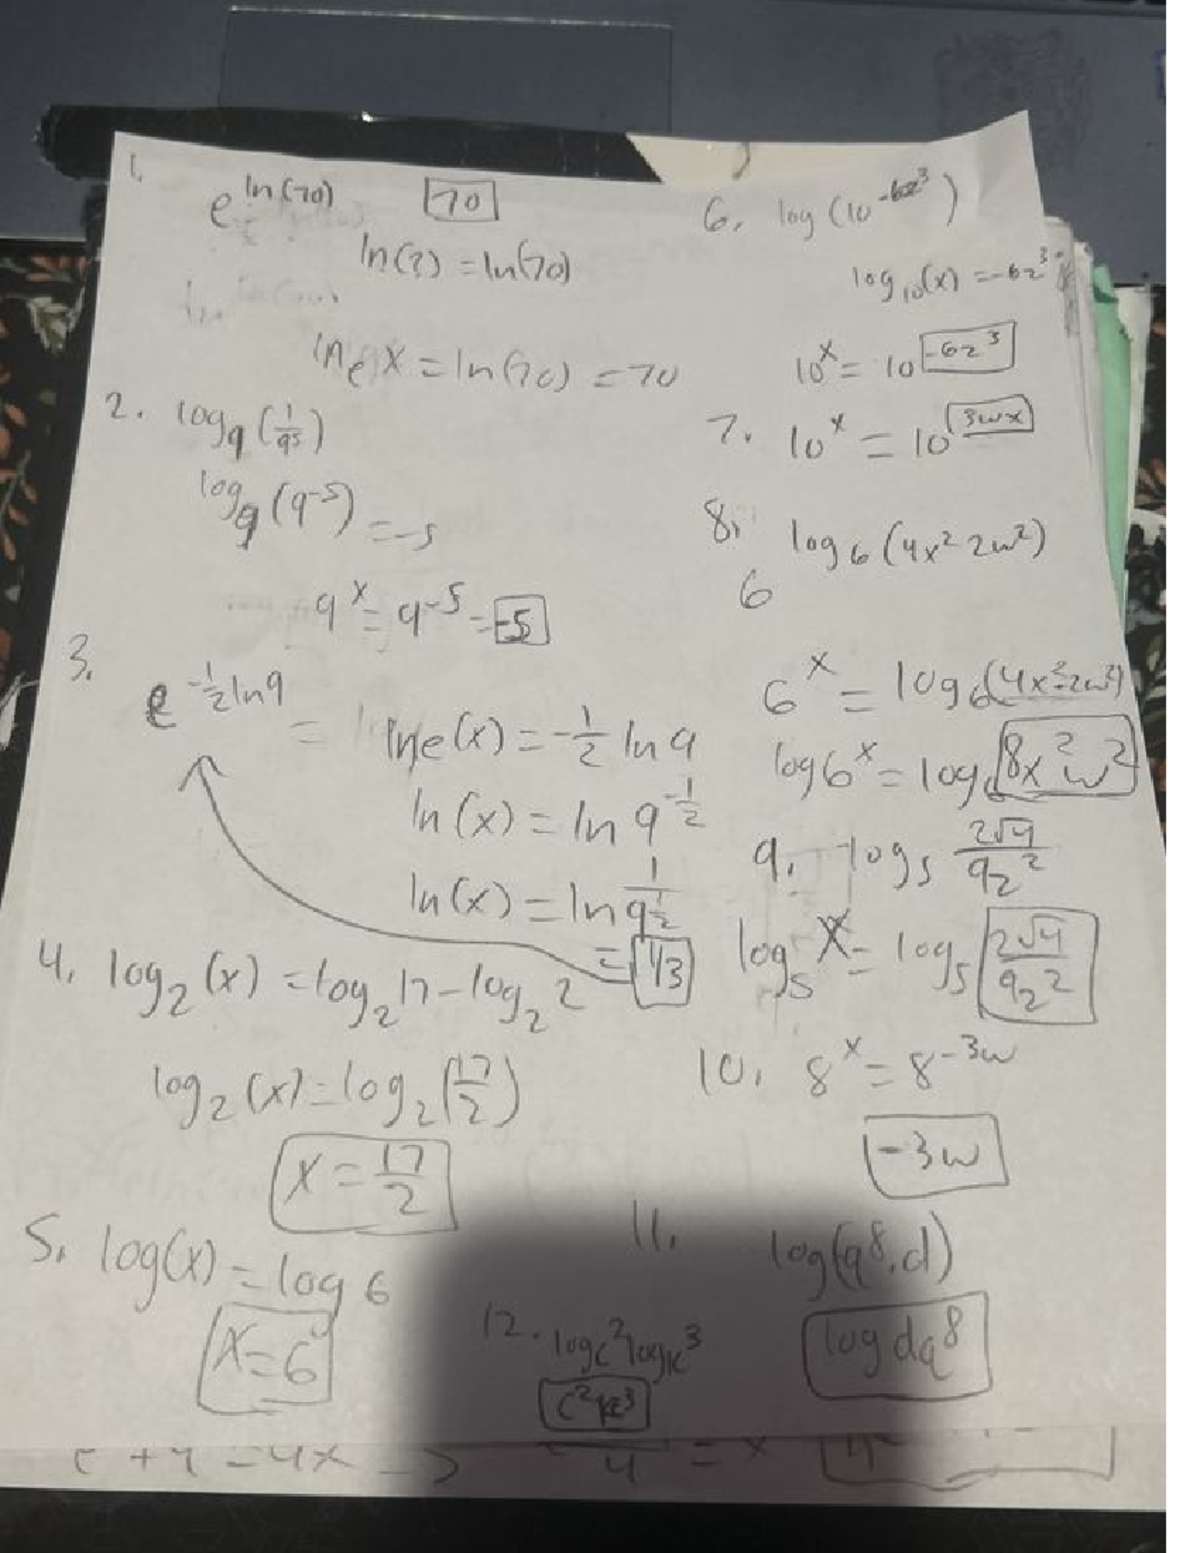 1.
e^ln(70) 70
ln(?) = ln(70)
ln_e X = ln(70) = 70
2. log_9 (1/9^5)
log_9 (9^-5) = -5
9^x = 9^-5 = -5
3.
e^-1/2 ln9 = ln e(x) = -1/2 ln 9
ln(x) = ln 9^-1/2
ln(x) = ln 1/9^1/2
= 1/3
4. log_2 (x) = log_2 17 - log_2 2
log_2 (x) = log_2 (17/2)
X = 17/2
5. log(x) = log 6
X = 6
6. log (10^-6z^3)
log_10 (x) = -6z^3
10^x = 10^-6z^3
7. 10^x = 10^3wx
8. log_6 (4x^2 2w^2)
6
6^x = log_6 (4x^2 2w^2)
log 6^x = log_6 8x^2 w^2
9. log_5 2√9/9z^2
log_5 X = log_5 2√9/9z^2
10. 8^x = 8^-3w
-3w
11. log(q^8·d)
log dq^8
12. log c^2 log k^3
c^2 k^3